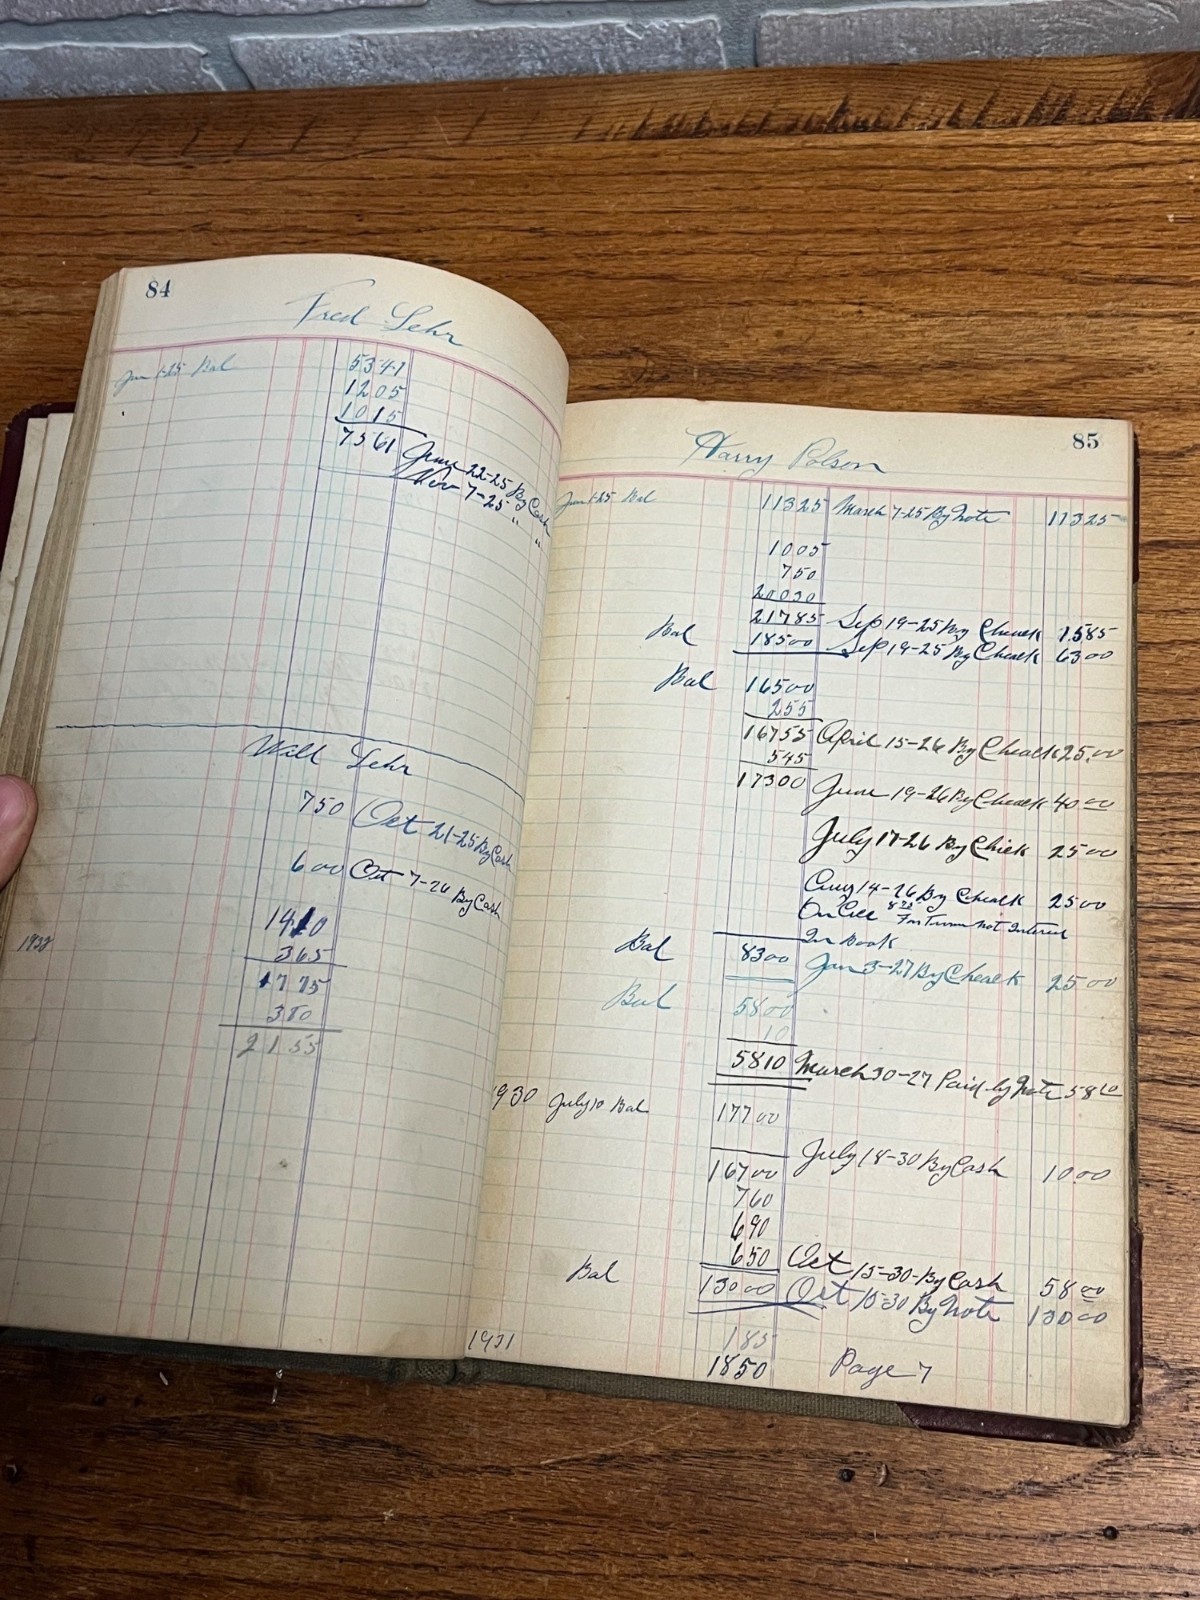 84
Fred Lehr
Jan 1-25 Bal 5347
1205
1015
7561 June 22-25 By Cash
Nov 7-25 " "
Will Lehr
750 Oct 21-25 By Cash
600 Oct 7-26 By Cash
1410
365
1775
380
2155
85
Harry Polson
Jan 1-25 Bal 11325 March 7-25 By Note 11325
1005
750
20030
21785 Sep 19-25 By Cheack 1585
Bal 18500 Sep 19-25 By Cheack 6300
Bal 16500
255
16755 April 15-26 By Cheack 25.00
545
17300 June 19-26 By Cheack 4000
July 17-26 By Check 2500
Aug 14-26 By Cheack 2500
not Interest
In Book
Bal 8300 Jan 3-27 By Cheack 2500
Bal 5800
10
5810 March 30-27 Paid by Note 5810
1930 July 10 Bal 17700
July 18-30 By Cash 1000
16700
760
690
650 Oct 15-30-By Cash 5800
Bal 13000 Oct 15-30 By Note 13000
1931 185
1850 Page 7